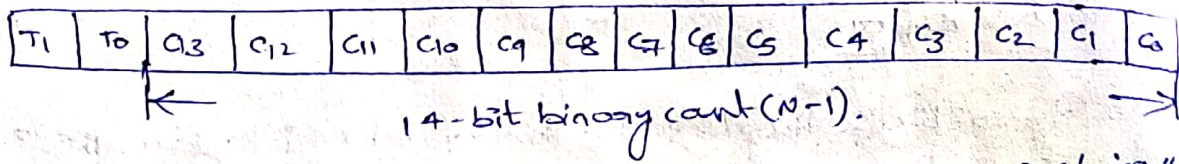 T1 T0 C13 C12 C11 C10 C9 C8 C7 C6 C5 C4 C3 C2 C1 C0
14-bit binary count (N-1).